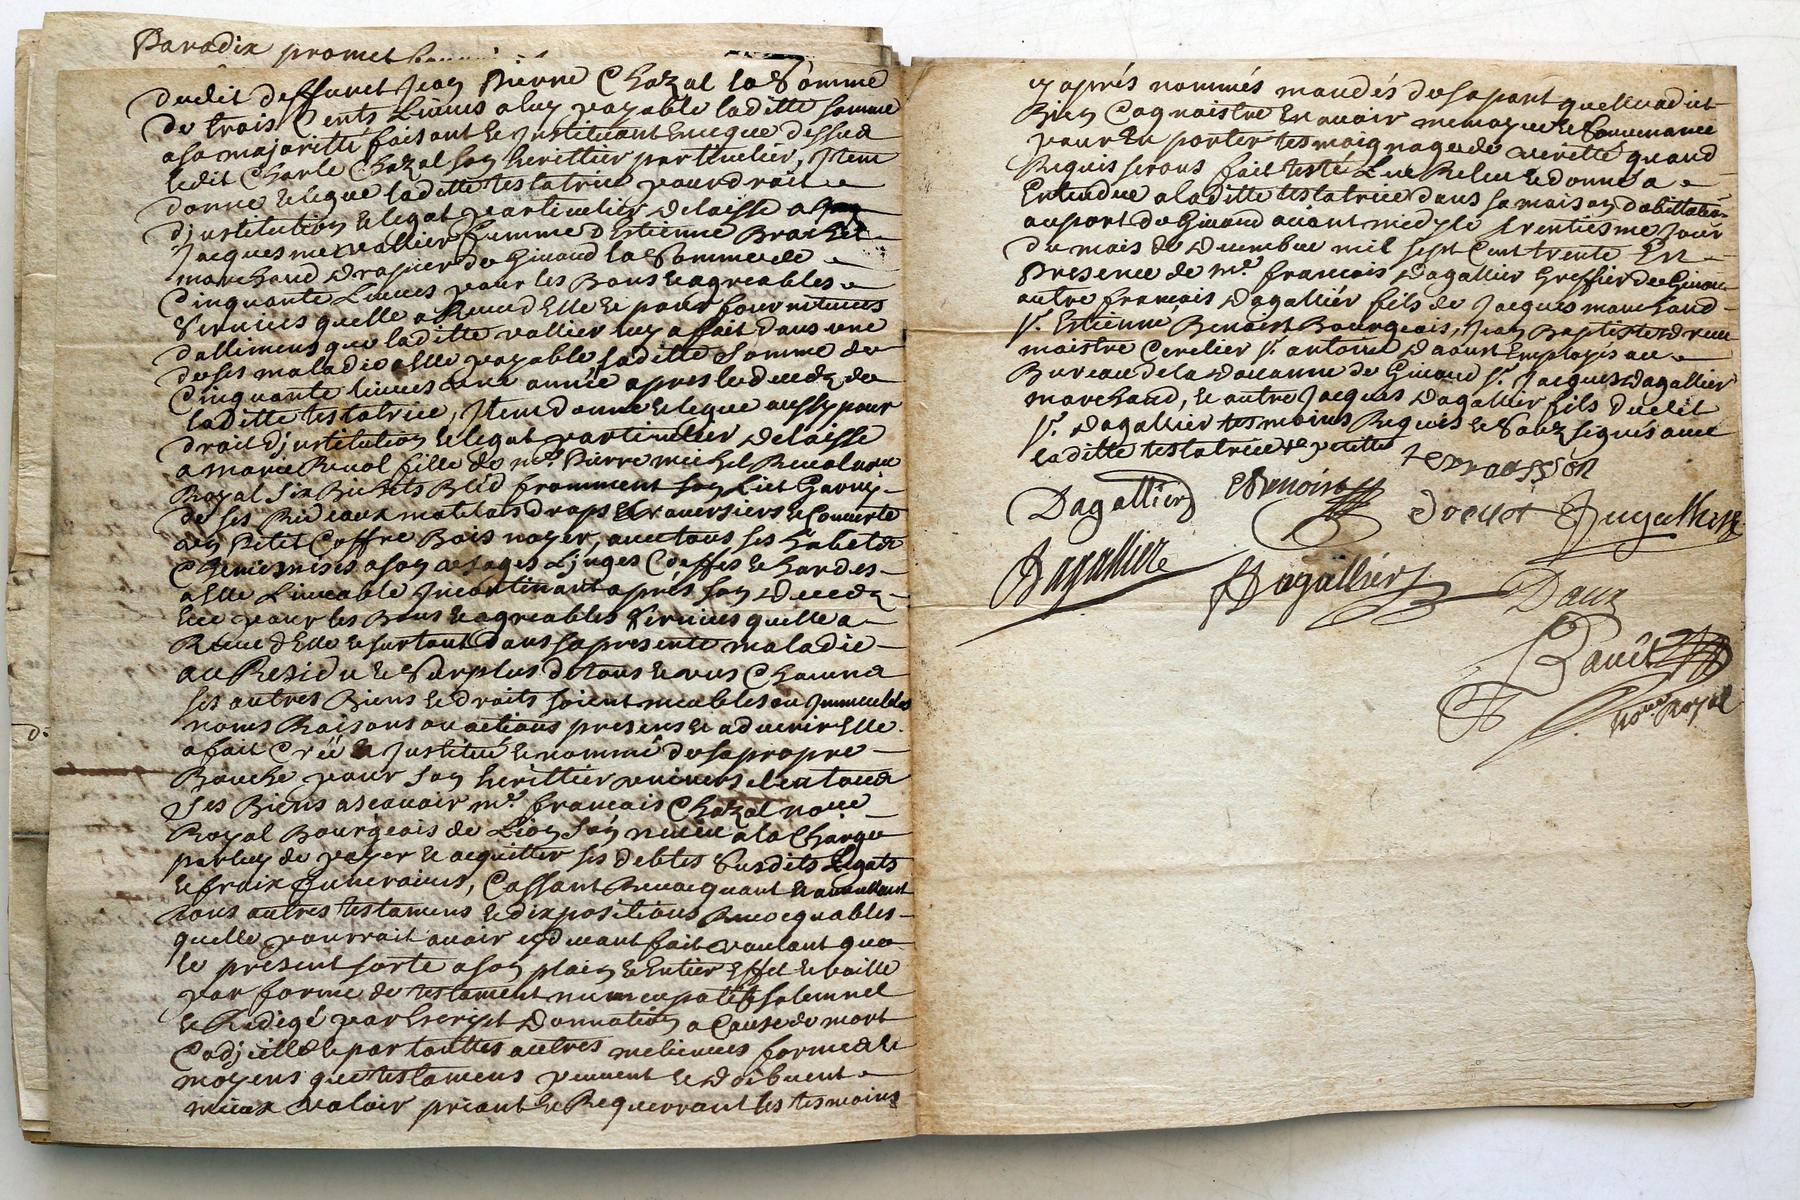 Paradix promet
dudit deffunct Jean Pierre Chazal la Somme
de trois Cents Livres a luy payable laditte somme
a sa majoritte faisant et Jnstituant Encque dessus
ledit Charle Chazal son herittier particulier, Jtem
donne et legue laditte testatrice pour droit
d'jnstitution et legat particulier delaisse a
Jacquesme vallier femme d'Estienne Brachet
marchand drapier de Givaud la Somme de
Cinquante Livres pour les Bons et agreables
Services quelle a Receu d'Elle et pour fournitures
dallimens que laditte vallier luy a fait dans une
de ses maladie a Elle payable laditte Somme de
Cinquante livres une année apres le decedz de
laditte testatrice, Jtem donne et legue aussy pour
droit d'jnstitution et legat particulier delaisse
a marie Renol fille de mᵉ Pierre michel Renol
Royal Six Bichets Bled fromment son Lict Garny
de ses Rideaux matelas draps traversiers et Couverte
un Petit Coffre Bois noyer, avec tous ses habits
Chemises a son usages Linges Coeffes et hardes
a Elle Livrable Jncontinant apres son Decedz
Et ce pour les Bons et agreables Services quelle a
Receu d'Elle et surtout dans sa presente maladie
au Residu et Surplus de tous et uns Chacuns
ses autres Biens et droits soient meubles ou Jmmeubles
noms Raisons ou actions presens et advenir Elle
a fait Créé et Jnstitué et nommé de sa propre
Bouche pour son herittier universel en tous
ses Biens ascavoir mᵉ francois Chazal noᵉʳᵉ
Royal Bourgeois de Lion son neveu a la Charge
par luy de payer et acquitter ses debtes Susdits Legats
et fraix funeraires, Cassant Revocquant et annullant
tous autres testamens et dixpositions Revocquables
quelle pourrait avoir cydevant fait voulant que
le present sorte a son plain et Entier Effet et vaille
par forme de testament nuncupatif solemnel
et Redigé par Escript Donnation a Cause de mort
Codjcille et par touttes autres melieures formes et
moyens que testamens peuvent et Doibvent
mieux valoir priant et Requerrant les tesmoins
cy après nommés mandés de sa part quelle a dit
Bien Cognaistre En avoir memoyre et Souvenance
pour En porter tesmoignage de veritté quand
Requis seront fait testé Lu Releu et donné a
Entendre a laditte testatrice dans sa maison d'abittation
au port de Givaud avant midy le trentiesme Jour
du mois de Decembre mil sept Cent trente En
Presence de mᵉ francois Dagallier Greffier de Givaud
autre francois Dagallier fils de Jacques marchand
sʳ. Estienne Benoist Bourgeois, Jean Baptiste
maistre Cerclier sʳ. antoine Daoust Employé au
Bureau de la Douanne de Givaud sʳ. Jacques Dagallier
marchand, et autre Jacques Dagallier fils dudit
sʳ. Dagallier tesmoins Requis et Soubz signés avec
laditte testatrice
Dagallier EBenoist terrasson
Dagallier
Dagallier Dagallier Daux
Ravet
noʳᵉ Royal